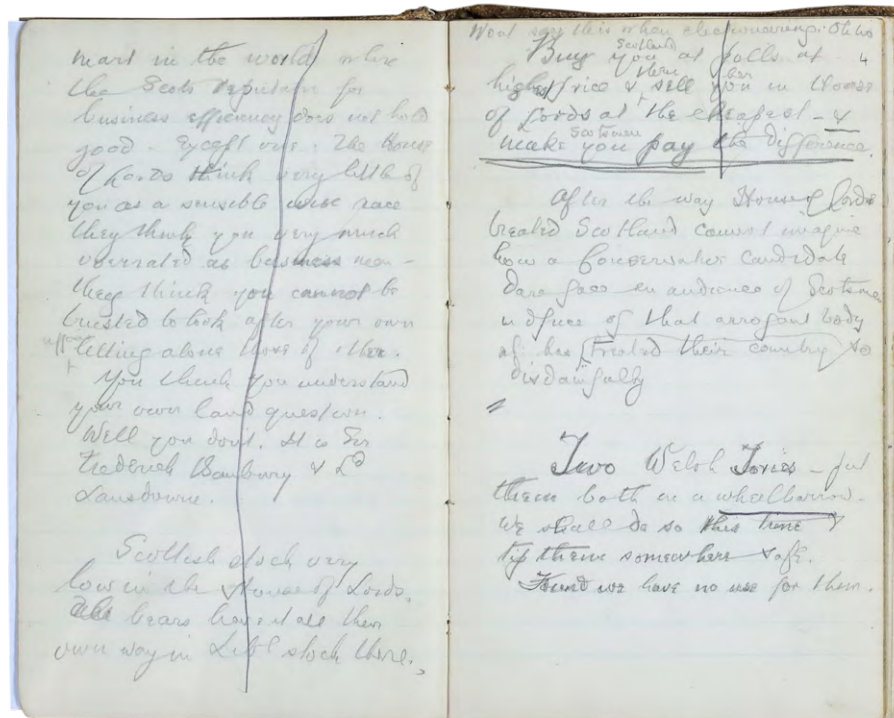 mart in the world where
the Scots reputation for
business efficiency does not hold
good – Except one. The House
of Lords think very little of
you as a sensible wise race
they think you very much
overrated as business men –
they think you cannot be
trusted to look after your own
affairs
letting alone those of other.
You think you understand
your own land question.
Well you don't. It is Sir
Frederick Banbury & Ld
Lansdowne.
Scottish stock very
low in the House of Lords.
The bears have it all their
own way in Libl stock there.
Wont say this when electioneering. Oh no
Scotland
Buy you at polls at 4
them her
highest price & sell you in House
of Lords at the cheapest – &
Scotsmen
make you pay the difference.
After the way House of Lords
treated Scotland cannot imagine
how a Conservative candidate
dare face an audience of Scotsmen
in defence of that arrogant body
has treated their country so
disdainfully
Two Welsh Tories – put
them both in a whelbarrow.
We shall do so this time &
tip them somewhere safe.
Found we have no use for them.